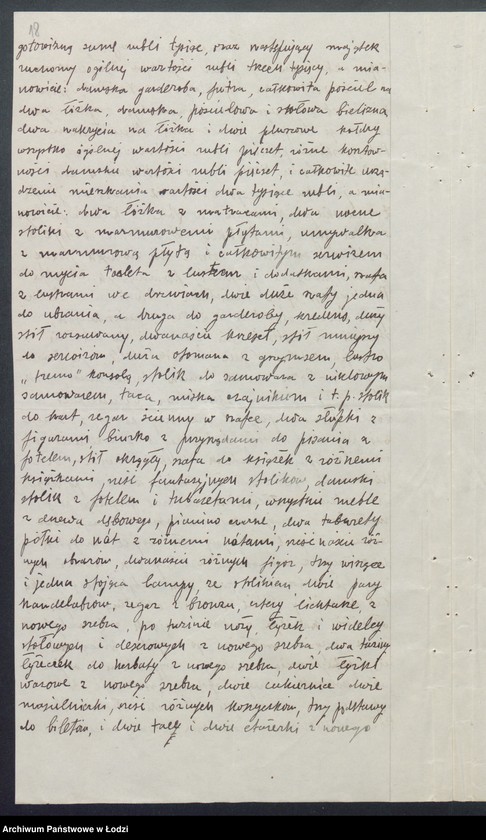 18
gotowizną sumę rubli tysiąc, oraz następujący majątek
ruchomy ogólnej wartości rubli trzech tysięcy, a mia-
nowicie: damska garderoba, futra, całkowita pościel na
dwa łóżka, damska, pościelowa i stołowa bielizna
dwa nakrycia na łóżka i dwie pluszowe kołdry
wszystko ogólnej wartości rubli pięćset, różne kosztow-
ności damskie wartości rubli pięćset, i całkowite urzą-
dzenie mieszkania wartości dwa tysiące rubli, a mia-
nowicie: dwa łóżka z matracami, dwa nocne
stoliki z marmurowemi płytami, umywalka
z marmurową płytą i całkowitym serwisem
do mycia toaleta z lustrem i dodatkami, szafa
z lustrami we drzwiach, dwie duże szafy jedna
do ubrania, a druga do garderoby, kredens, duży
stół rozsuwany, dwanaście krzeseł, stół mniejszy
do serwisów, duża otomana z lustro
"tremo" konsolą, stolik do samowara z niklowym
samowarem, taca, miska czajnikiem i t. p. stolik
do kart, zegar ścienny w szafce, dwa słupki z
figurami, biurko z przyrządami do pisania z
fotelem, stół okrągły, szafa do książek z różnemi
książkami, sześć fantazyjnych stolików, damski
stolik z fotelem i taburetami, wszystkie meble
z drzewa dębowego, pianino czarne, dwa taburety
półki do nut z różnemi nutami, sześćnaście róż-
nych obrazów, dwanaście różnych figur, trzy wiszące
i jedna stojąca lampy ze stolikiem dwie pary
kandelabrów, zegar z bronzu, cztery lichtarze z
nowego srebra, po tuzinie noży, łyżek i widelcy
stołowych i deserowych z nowego srebra, dwa tuziny
łyżeczek do herbaty z nowego srebra, dwie łyżki
wazowe z nowego srebra, dwie cukiernice dwie
maselniczki, sześć różnych koszyczków, trzy podstawy
do biletów, i dwie tace i dwie etażerki z nowego
Archiwum Państwowe w Łodzi